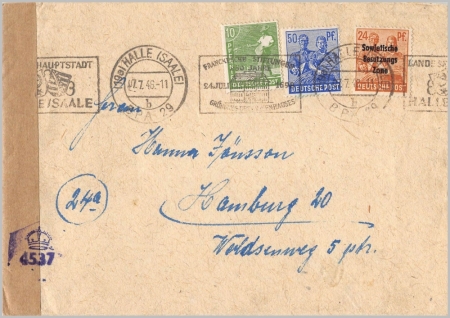 HAUPTSTADT
HALLE (SAALE)
(19a) HALLE (SAALE)
07.7.48-11
b
P.A. 29
10 PF
DEUTSCHE POST
50 PF
DEUTSCHE POST
24 PF
Sowjetische
Besatzungs
Zone
DEUTSCHE POST
HALLE
Hanna Jönsson
24a
Hamburg 20
Woldsenweg 5 ptr.
4537